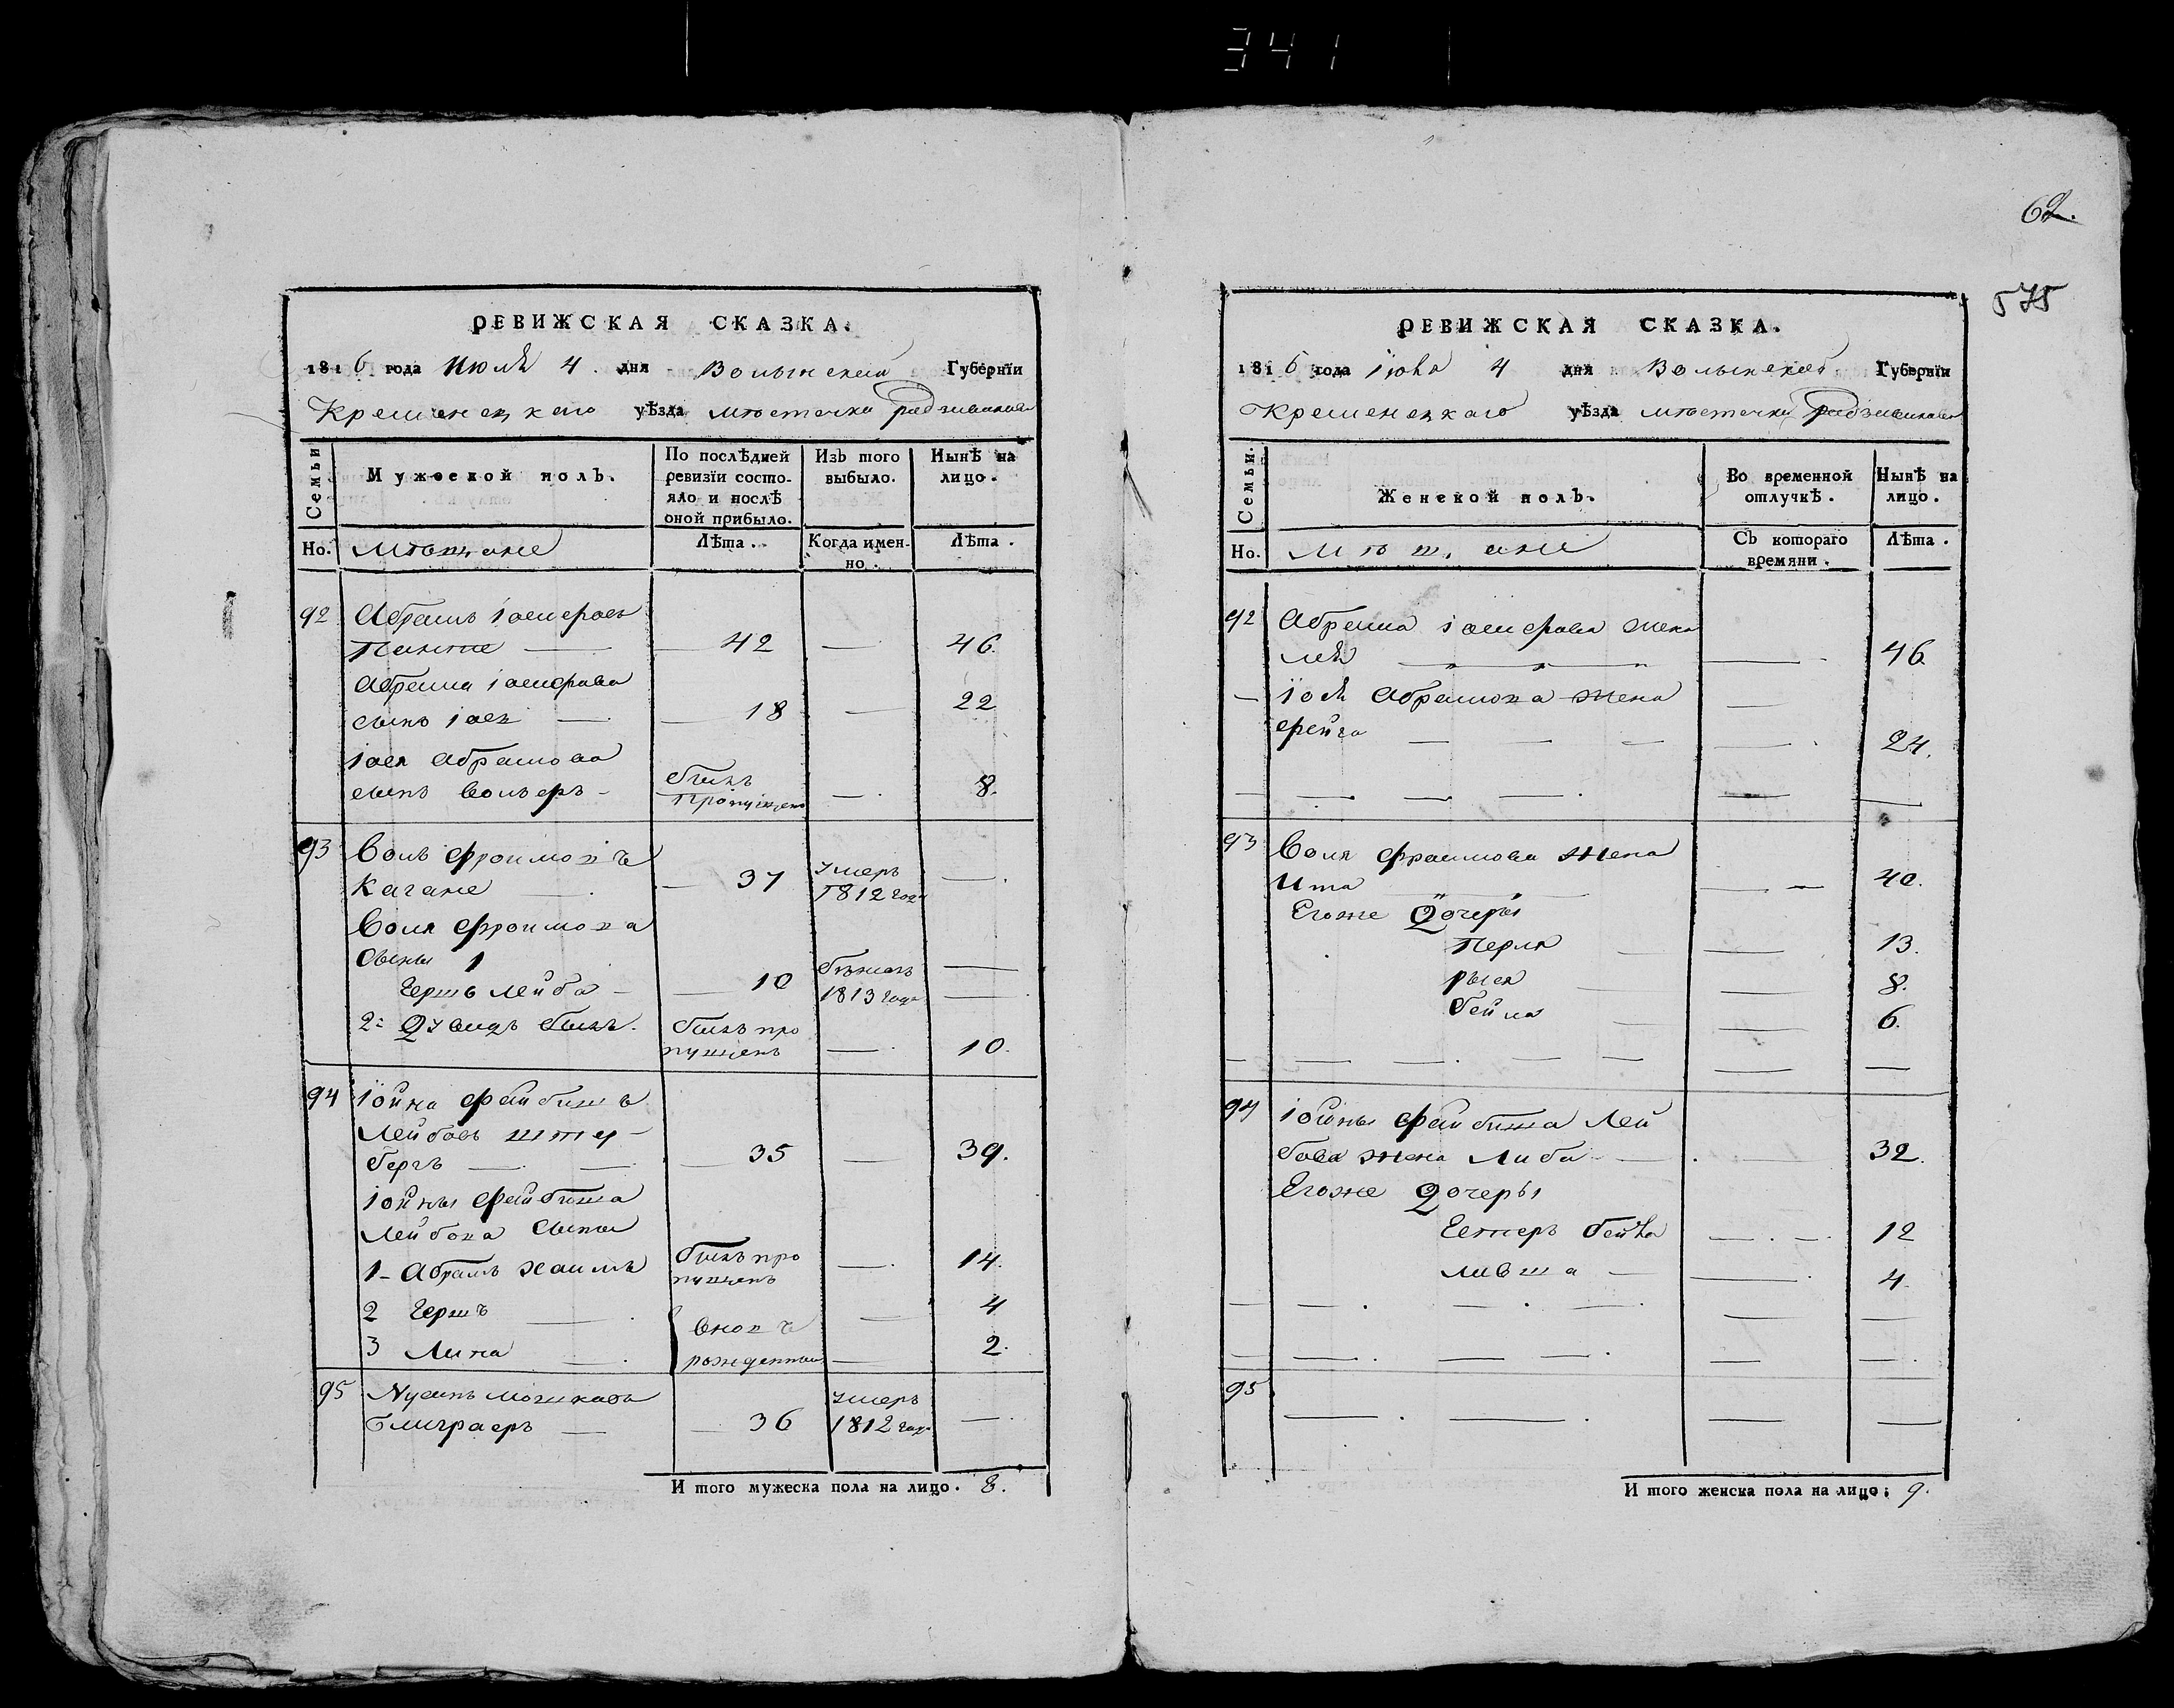 341
62.
575
РЕВИЖСКАЯ СКАЗКА.
1816 года Июля 4. дня Волынской Губерніи
Кременецкаго уѣзда мѣстечка Радзивилова
Семьи
Мужеской полЪ.
По послѣдней ревизіи состо-
яло и послѣ
оной прибыло.
ИзЪ того
выбыло.
НынѢ на
лицо.
Но. мѣщане
Лѣта.
Когда имен-
но.
Лѣта.
92 Абрамъ
42 — 46.
Абрама
сынъ 18 — 22
Абрамова
сынъ былъ
пропущенъ — 8.
93 Воль Фроимовъ
Кагане — 37 умеръ
1812 года —
Воля Фроимова
сыны 1
Гершъ Лейба — 10 бѣжалъ
1813 года —
2: Давидъ былъ про
пущенъ — 10.
94 Іойна Файбишъ
Лейбовъ
бергъ — 35 — 39.
Іойны Файбиша
Лейбова сыны
1 - Абрамъ Хаимъ былъ про
пущенъ — 14.
2 Гершъ — вновь — 4
3 — рожденные — 2.
95 Нусинъ Мошковъ
— 36 умеръ
1812 года —
И того мужеска пола на лицо. 8.
РЕВИЖСКАЯ СКАЗКА.
1816 года Іюля 4 дня Волынской Губерніи
Кременецкаго уѣзда мѣстечка Радзивилова
Семьи.
Женской полЪ.
Во временной
отлучкѣ.
НынѢ на
лицо.
Но. мѣщане
СЪ котораго
времяни.
Лѣта.
92 Абрама жена
Лея — 46.
Абрамова жена
Фейга — 24.
93 Воля Фраимова жена
Ита — 40.
Егоже дочеры
Перля — 13.
Рыся — 8.
Бейла — 6.
94 Іойны Файбиша Лей
бова жена Либа — 32.
Егоже дочеры
Естеръ Бейла — 12
Лившa — 4.
95
И того женска пола на лицо: 9.